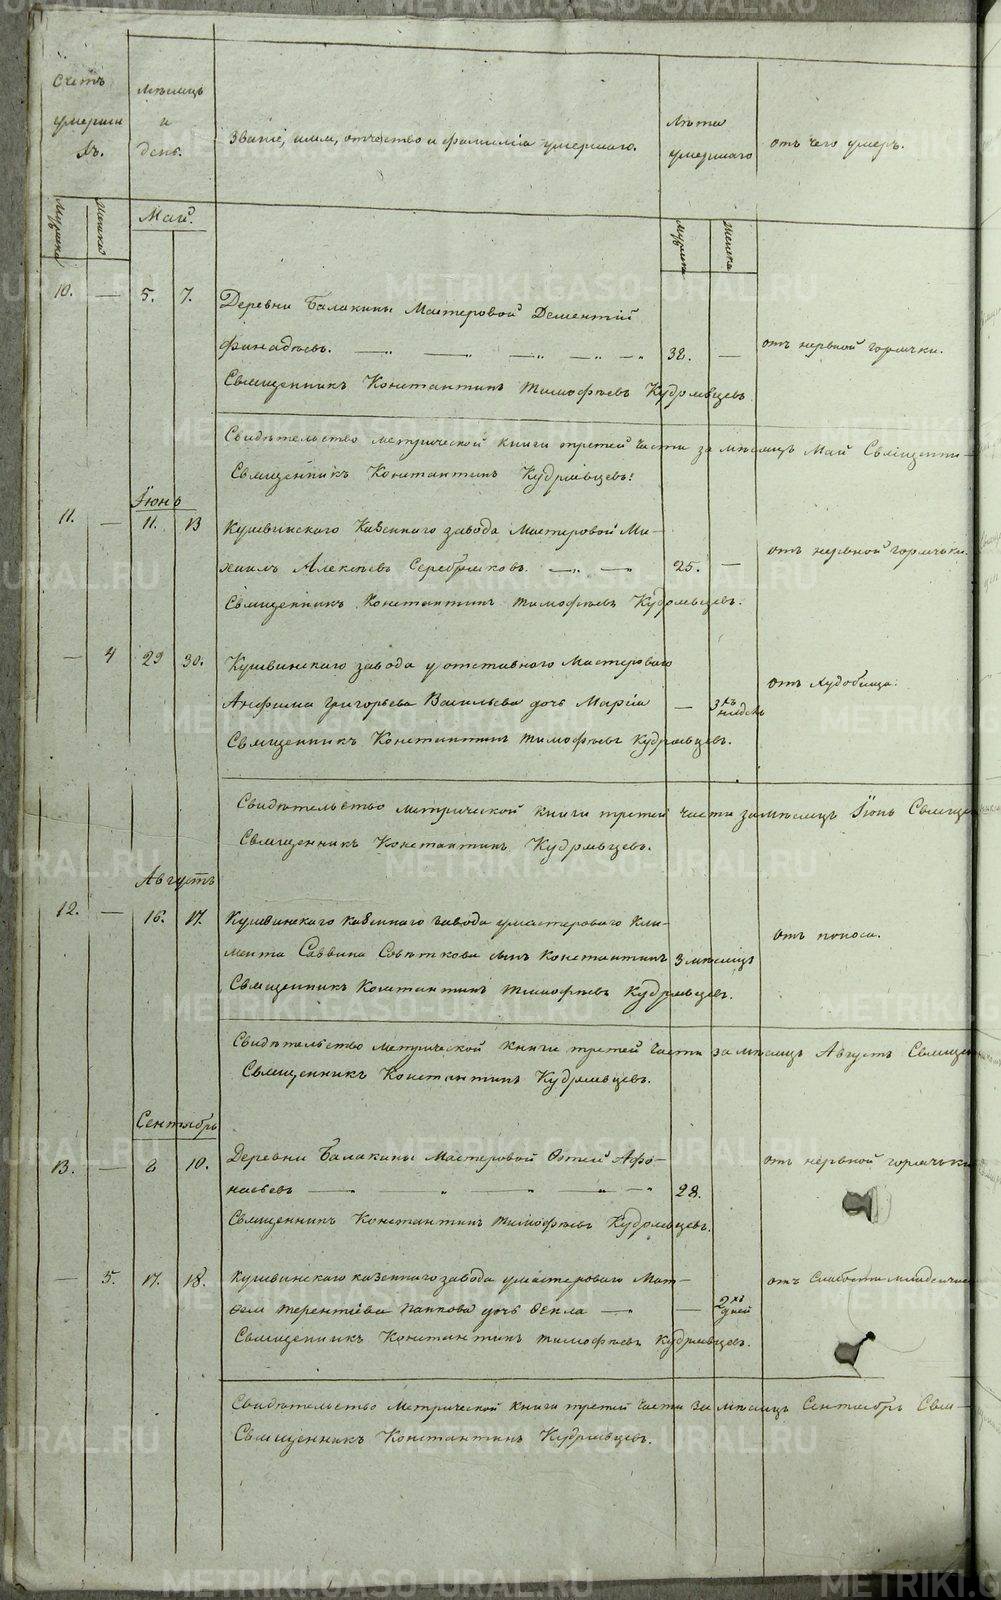 Счетъ умершихъ.
мѣсяцъ и день.
Званіе, имя, отчество и фамилія умершаго.
Лѣта умершаго
отъ чего умеръ.
Мужеска
Женска
Маій.
мужеска
Женска
10. — 5. 7.
Деревни Балакины Мастеровой Дементій
Финадѣевъ. 32. —
отъ нервной горячки.
Священникъ Константинъ Тимофѣевъ Кудрявцевъ
Свидѣтельство метрической книги третей части за мѣсяцъ Май Священни-
Священникъ Константинъ Кудрявцевъ.
Іюнь
11. — 11. 13
Кушвинскаго Казеннаго завода Мастеровой Ми-
хаилъ Алексѣевъ Серебряковъ. 25. —
отъ нервной горячьки.
Священникъ Константинъ Тимофѣевъ Кудрявцевъ.
— 4 29 30.
Кушвинскаго завода у отставного Мастероваго
Анфима Григорьева Васильева дочь Марія — 3хъ недель
отъ худобища.
Священникъ Константинъ Тимофѣевъ Кудрявцевъ.
Свидѣтельство метрической книги третей части за мѣсяцъ Іюнь Священ
Священникъ Константинъ Кудрявцевъ.
Августъ
12. — 16. 17.
Кушвинскаго казеннаго завода умастероваго Кли-
мента Саввина Совѣткова сынъ Константинъ 3 мѣсяцъ
отъ поноса.
Священникъ Константинъ Тимофѣевъ Кудрявцевъ.
Свидѣтельство метрической книги третей части за мѣсяцъ Августъ Священ
Священникъ Константинъ Кудрявцевъ.
Сентябрь
13. — 8 10.
Деревни Балакины Мастеровой Фотей Афо-
насьевъ 28.
отъ нервной горячьки
Священникъ Константинъ Тимофѣевъ Кудрявцевъ.
— 5. 17. 18.
Кушвинскаго казеннаго завода умастероваго Мат-
фея Терентіева Папкова дочь Фекла — 2хъ дней
отъ слабости младенчес
Священникъ Константинъ Тимофѣевъ Кудрявцевъ.
Свидѣтельство Метрической книги третей части за мѣсяцъ Сентябрь Свя-
Священникъ Константинъ Кудрявцевъ.
METRIKI.GASO-URAL.RU